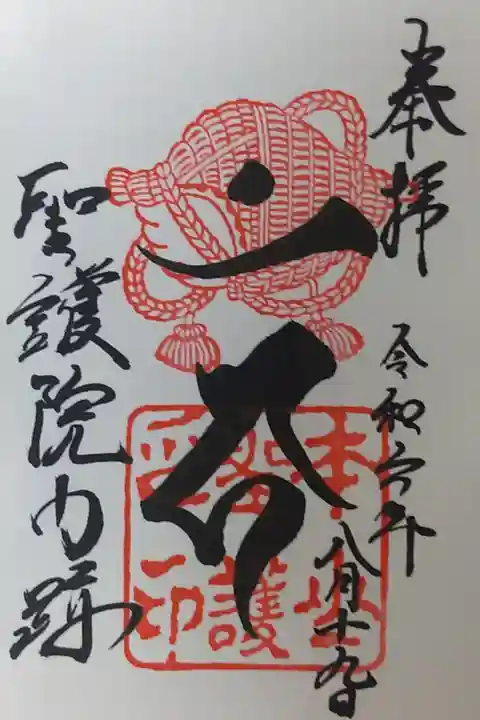 奉拝
令和六年
八月十九日
聖護院門跡